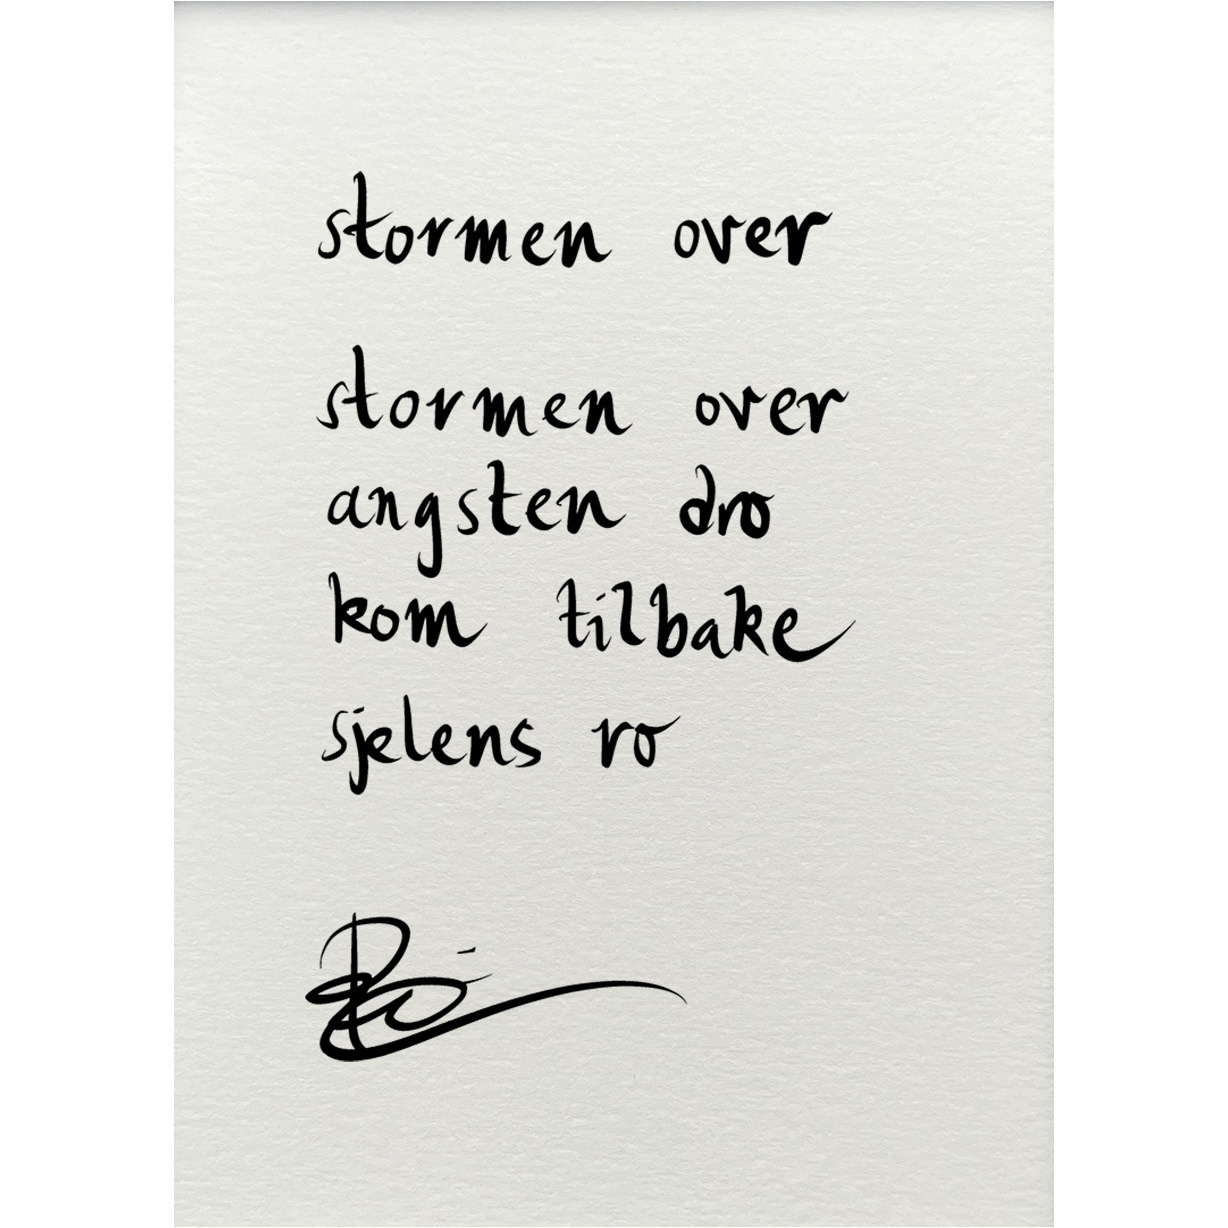 stormen over
stormen over
angsten dro
kom tilbake
sjelens ro